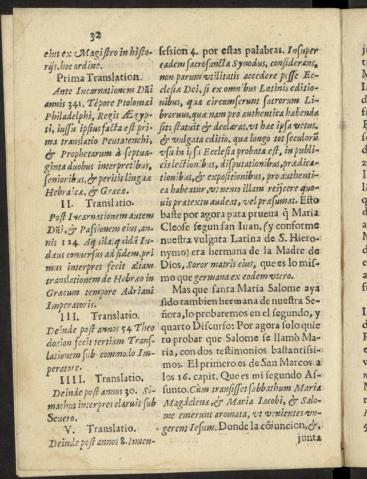 32
eius ex Magistro in histo-
rijs, hoc ordine.
Prima Translation.
Ante Incarnationem Dñi
annis 341. Tẽpore Ptolomæi
Philadelphi, Regis Ægyp-
ti, iussu ipsius facta est pri
ma translatio Peutatenchi,
& Prophetarum à septua-
ginta duobus interpretibus,
senioribus, & peritis linguæ
Hebraicæ, & Græcæ.
II. Translatio.
Post Incarnationem autem
Dñi, & Passionem eius, an-
nis 124. Aquila, quidã Iu-
dæus conuersus ad fidem, pri
mus interpres fecit aliam
translationem de Hebræo in
Græcum tempore Adriani
Imperatoris.
III. Translatio.
Deinde post annos 54. Theo
docion fecit tertiam Trans-
lationem sub commodo Im-
peratore.
IIII. Translatio.
Deinde post annos 30. Si-
machus interpres claruit sub
Seuero.
V. Translatio.
Deinde post annos 8. Inuen-
session 4. por estas palabras. Insuper
eadem sacrosancta Synodus, considerans,
non parum vtilitatis accedere posse Ec-
clesiæ Dei, si ex omnibus Latinis editio-
nibus, quæ circumferunt sacrorum Li-
brorum, quæ nam pro authentica habenda
sit; statuit & declarat, vt hæc ipsa vetus,
& vulgata editio, quæ longo tot seculorũ
vsu in ipsa Ecclesia probata est, in publi-
cis lectionibus, disputationibus, prædica-
tionibus, & expositionibus, pro authenti-
ca habeatur, vt nemo illam reijcere quo-
uis prætextu audeat, vel præsumat. Esto
baste por agora para prueua q̃ Maria
Cleofe segun san Iuan, (y conforme
nuestra vulgata Latina de S. Hiero-
nymo) era hermana de la Madre de
Dios, Soror matris eius, que es lo mis-
mo que germana ex eodem vtero.
Mas que santa Maria Salome aya
sido tambien hermana de nuestra Se-
ñora, lo probaremos en el segundo, y
quarto Discurso: Por agora solo quie
ro probar que Salome se llamò Ma-
ria, con dos testimonios bastantissi-
mos. El primero es de San Marcos a
los 16. capit. Que es mi segundo As-
sunto. Cùm transisset sabbathum Maria
Magdalena, & Maria Iacobi, & Salo-
me emerunt aromata, vt venientes vn-
gerent Iesum. Donde la cõiuncion, &,
junta